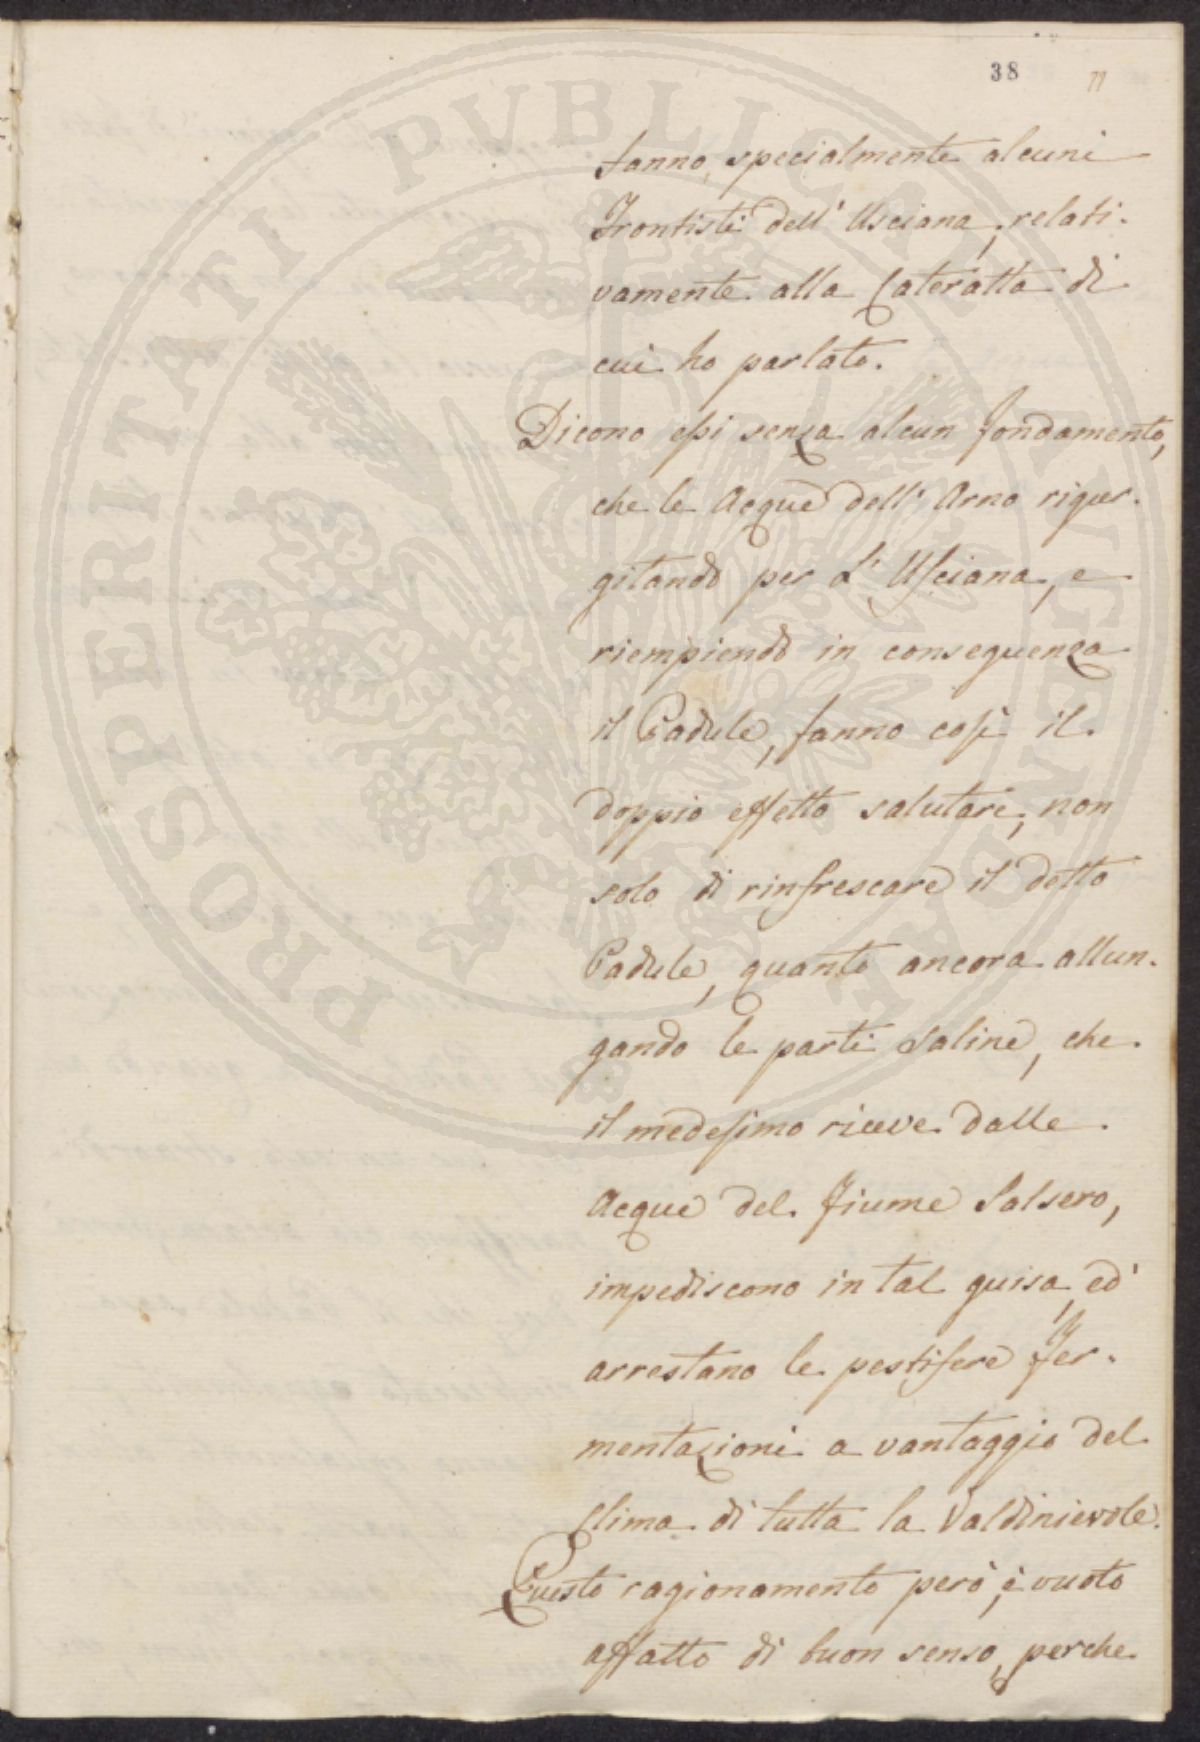 38 71
fanno, specialmente alcuni
Frontisti dell' Usciana, relati-
vamente alla Cateratta di
cui ho parlato.
Dicono essi senza alcun fondamento,
che le Acque dell' Arno rigur-
gitando per L' Usciana, e
riempiendo in conseguenza
il Padule, fanno così il
doppio effetto salutare, non
solo di rinfrescare il detto
Padule, quanto ancora allun-
gando le parti saline, che
il medesimo riceve dalle
Acque del Fiume Salsero,
impediscono in tal guisa, ed
arrestano le pestifere fer-
mentazioni a vantaggio del
Clima di tutta la Valdinievole.
Questo ragionamento però, è vuoto
affatto di buon senso, perche
PROSPERITATI PVBLICAE AVGENDAE